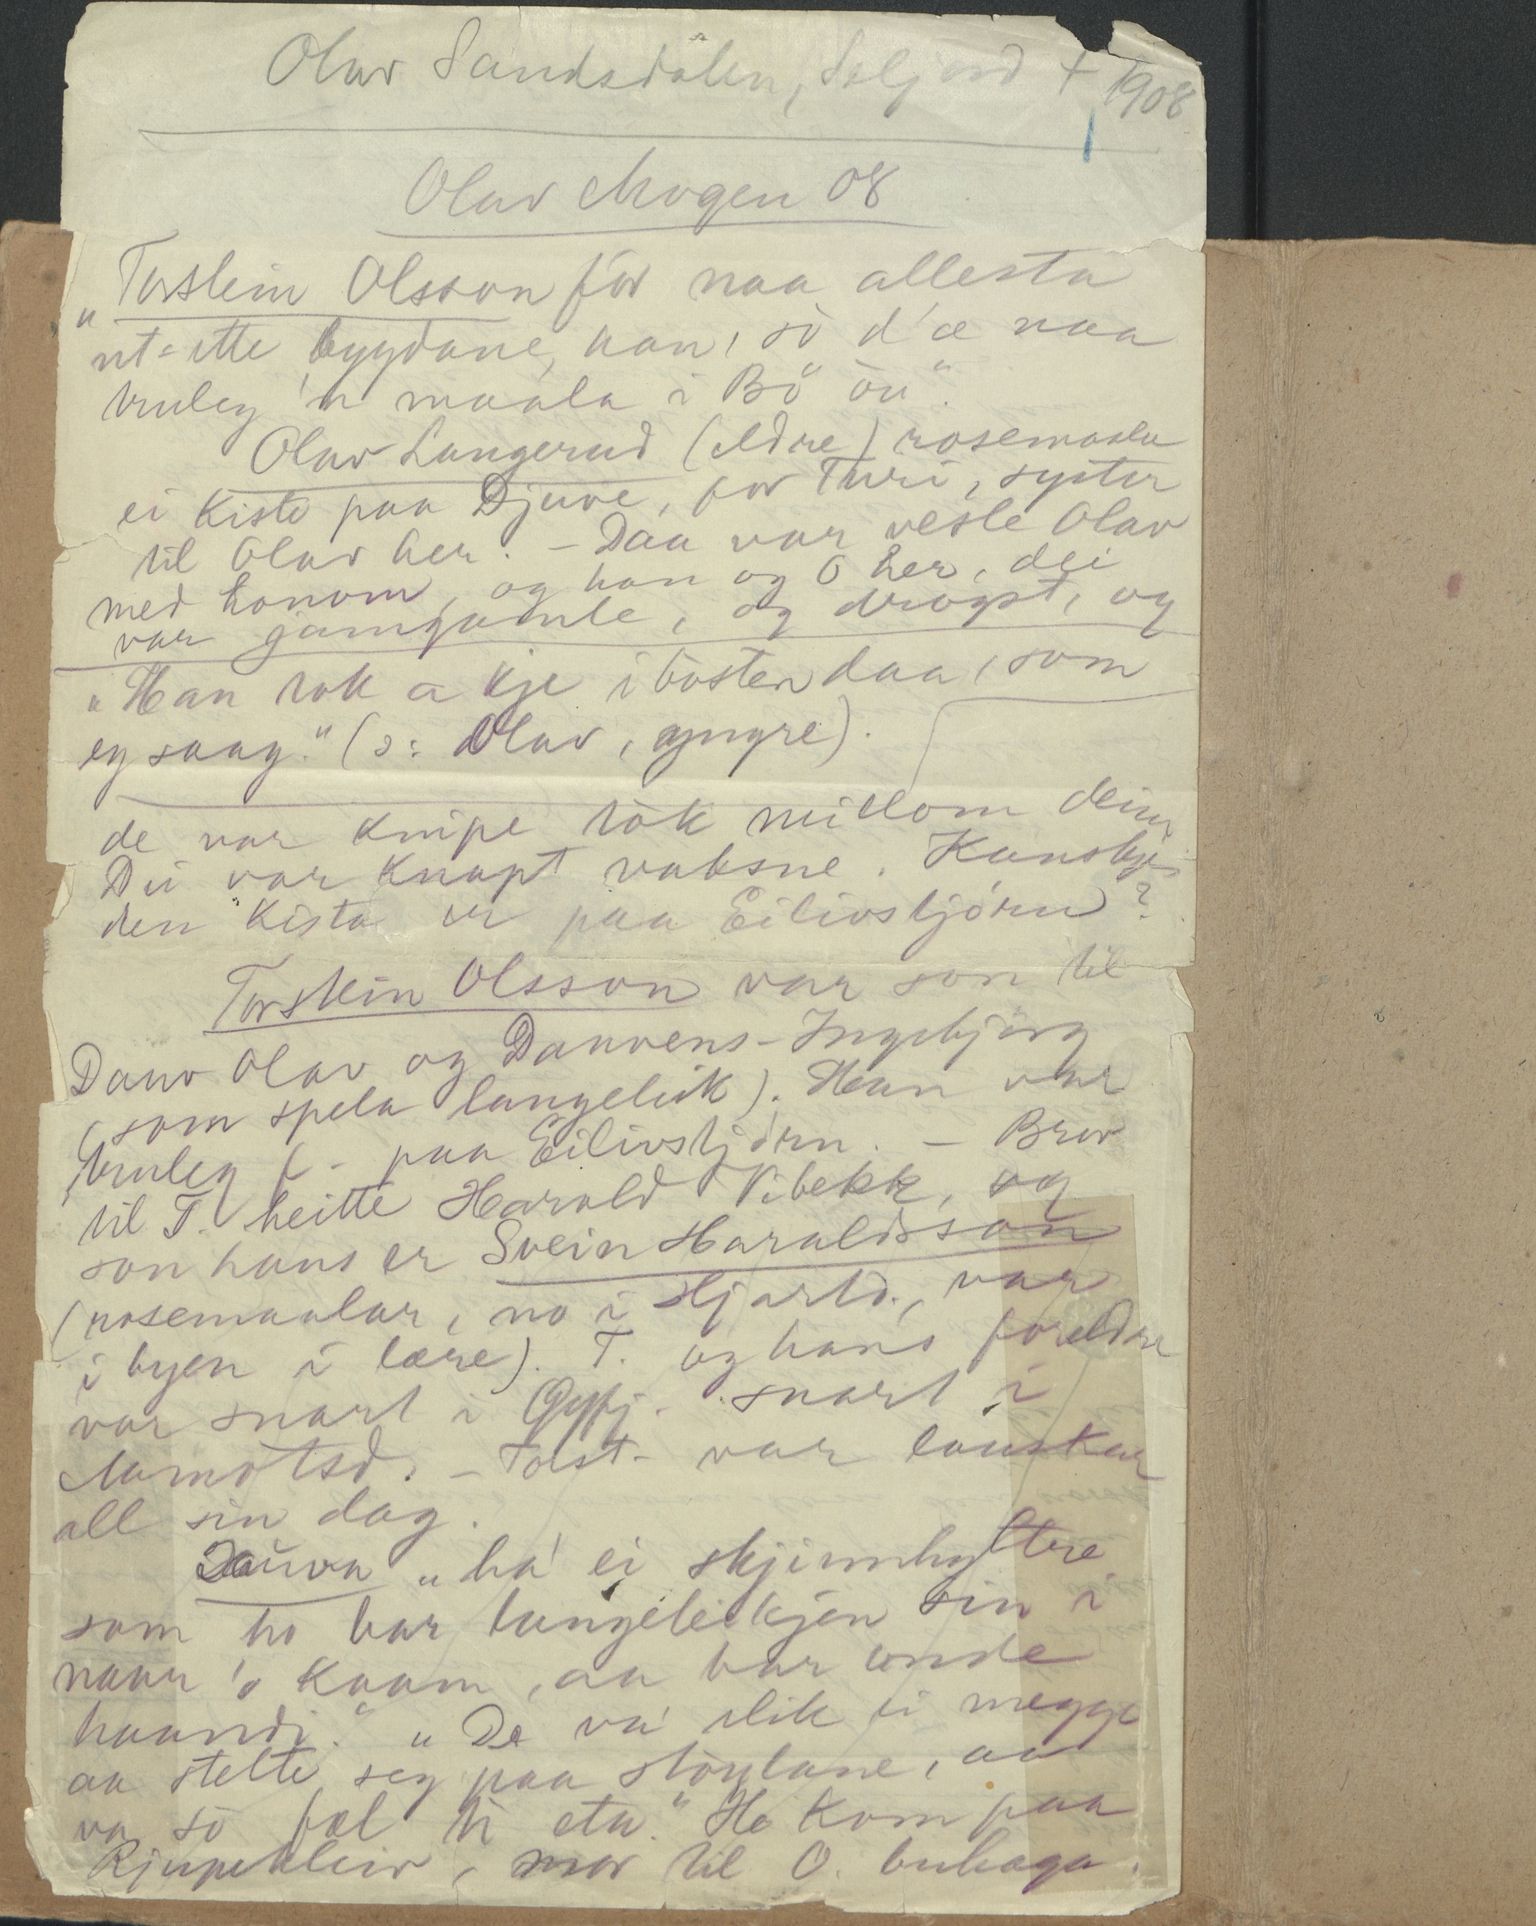 Olav Sandsdalen, Seljord + 1908
Olav Mogen 08
"Torstein Olsson fór naa allesta
ut-ette bygdane, han, so d'æ naa
truleg 'n maala i Bö òu".
Olav Langerud (eldre) rosemaala
ei kiste paa Djuve, for Turi, syster
til Olav her. - Daa var vesle Olav
med honom, og han og O her, dei
var jamgamle, og drogst, og
"Han tok a kje i bosten daa, som
eg saag." (ɔ: Olav, yngre).
de var knipe tòk millom deim
Dei var knapt vaksne. Kanskje
den kista er paa Eilivstjörn?
Torstein Olsson var son til
Dauv Olav og Dauvens-Ingebjörg
(som spela langeleik). Han var
truleg f- paa Eilivstjörn. - Bror
til T. heitte Harald Vibekk, og
son hans er Svein Haraldsson
(rosemaalar, no i Hjartd., var
i byen i lære). T. og hans foreldre
var snart i snart i
Aamotsd. - Torst- var lauskar
all sin dag.
Dauva "ha' ei skjinnhyttre
som ho bar langeleikjen sin i
naar 'o kaam, aa bar unde
haandi." "De va' slik ei megge
aa stelte seg paa stöylane, aa
va so fæl ti eta." Ho kom paa
Rjupekleiv, mor til O. bukaga.